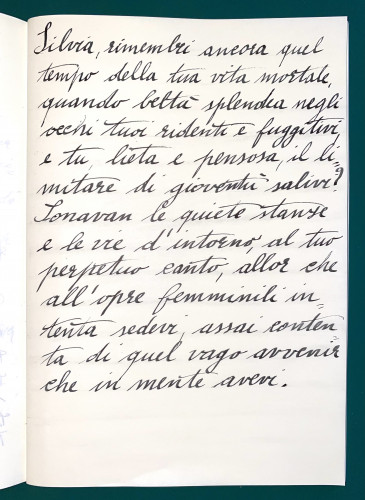 Silvia, rimembri ancora quel
tempo della tua vita mortale,
quando beltà splendea negli
occhi tuoi ridenti e fuggitivi,
e tu, lieta e pensosa, il li=
mitare di gioventù salivi?
Sonavan le quiete stanze
e le vie d'intorno, al tuo
perpetuo canto, allor che
all'opre femminili in=
tenta sedevi, assai conten=
ta di quel vago avvenir
che in mente avevi.